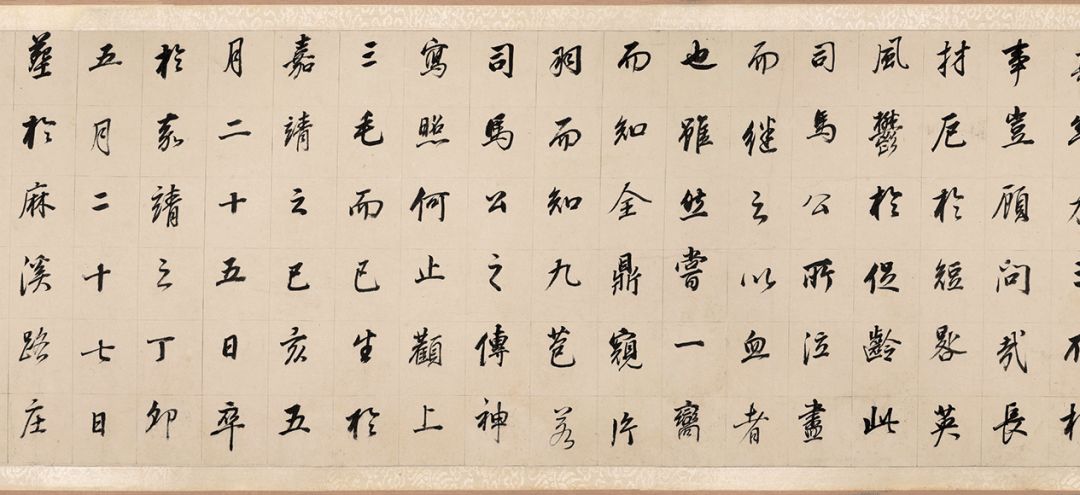 事豈顧問哉長
材厄於短晷英
風鬱於促齡此
司馬公所泣盡
而繼之以血者
也雖然嘗一臠
而知全鼎窺片
羽而知九苞若
司馬公之傳神
寫照何止顴上
三毛而已生於
嘉靖之己亥五
月二十五日卒
於嘉靖之丁卯
五月二十七日
葬於麻溪路庄